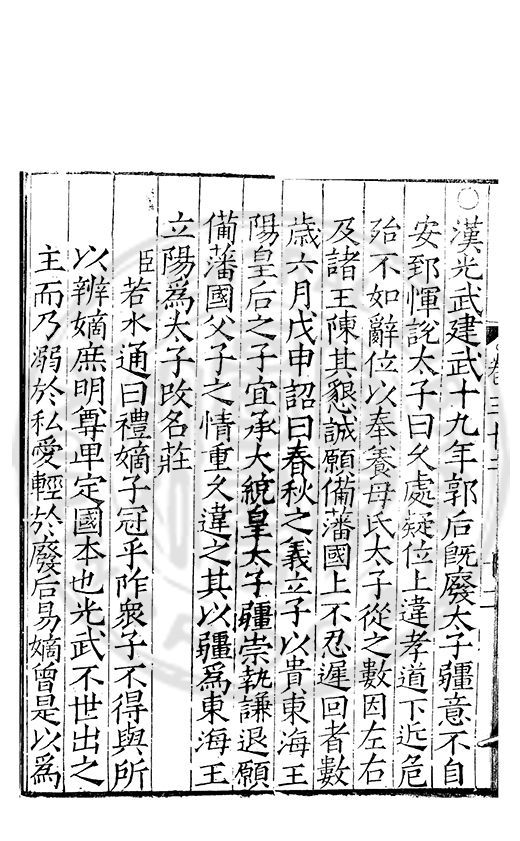 ○漢光武建武十九年郭后旣廢太子疆意不自
安郅惲說太子曰久處疑位上違孝道下近危
殆不如辭位以奉養母氏太子從之數因左右
及諸王陳其懇誠願備藩國上不忍遲回者數
歳六月戊申詔曰春秋之義立子以貴東海王
陽皇后之子宜承大統皇太子疆崇執謙退願
備藩國父子之情重久違之其以疆爲東海王
立陽爲太子改名莊
臣若水通曰禮嫡子冠乎阼衆子不得與所
以辨嫡庶明尊卑定國本也光武不世出之
主而乃溺於私愛輕於廢后易嫡曾是以爲